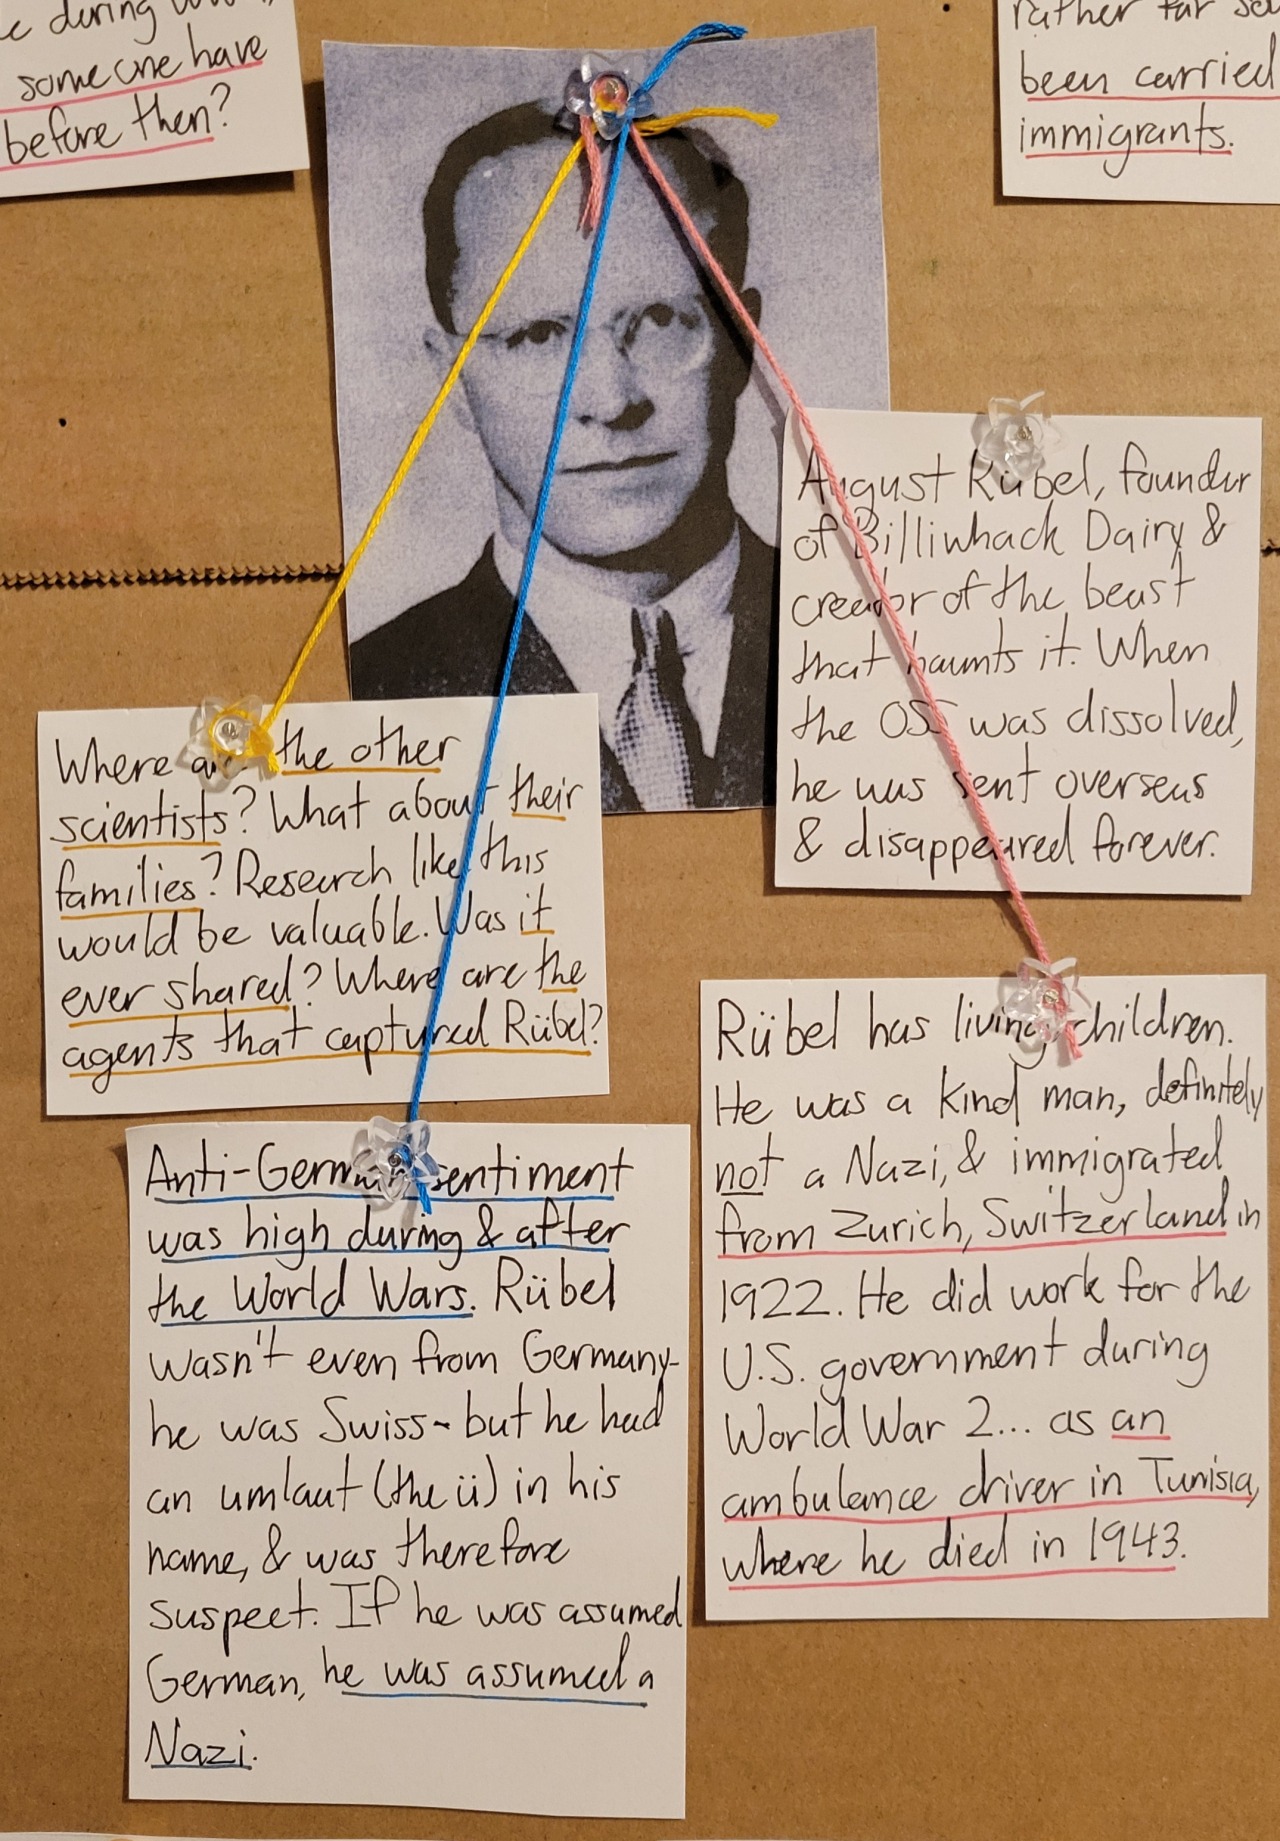 during
someone have
before then?
rather far
been carried
immigrants.
August Rübel, founder
of Billiwhack Dairy &
creator of the beast
that haunts it. When
the OSS was dissolved,
he was sent overseas
& disappeared forever.
Where are the other
scientists? What about their
families? Research like this
would be valuable. Was it
ever shared? Where are the
agents that captured Rübel?
Rübel has living children.
He was a kind man, definitely
not a Nazi, & immigrated
from Zurich, Switzerland in
1922. He did work for the
U.S. government during
World War 2... as an
ambulance driver in Tunisia,
where he died in 1943.
Anti-German sentiment
was high during & after
the World Wars. Rübel
wasn't even from Germany-
he was Swiss- but he had
an umlaut (the ü) in his
name, & was therefore
suspect. If he was assumed
German, he was assumed a
Nazi.